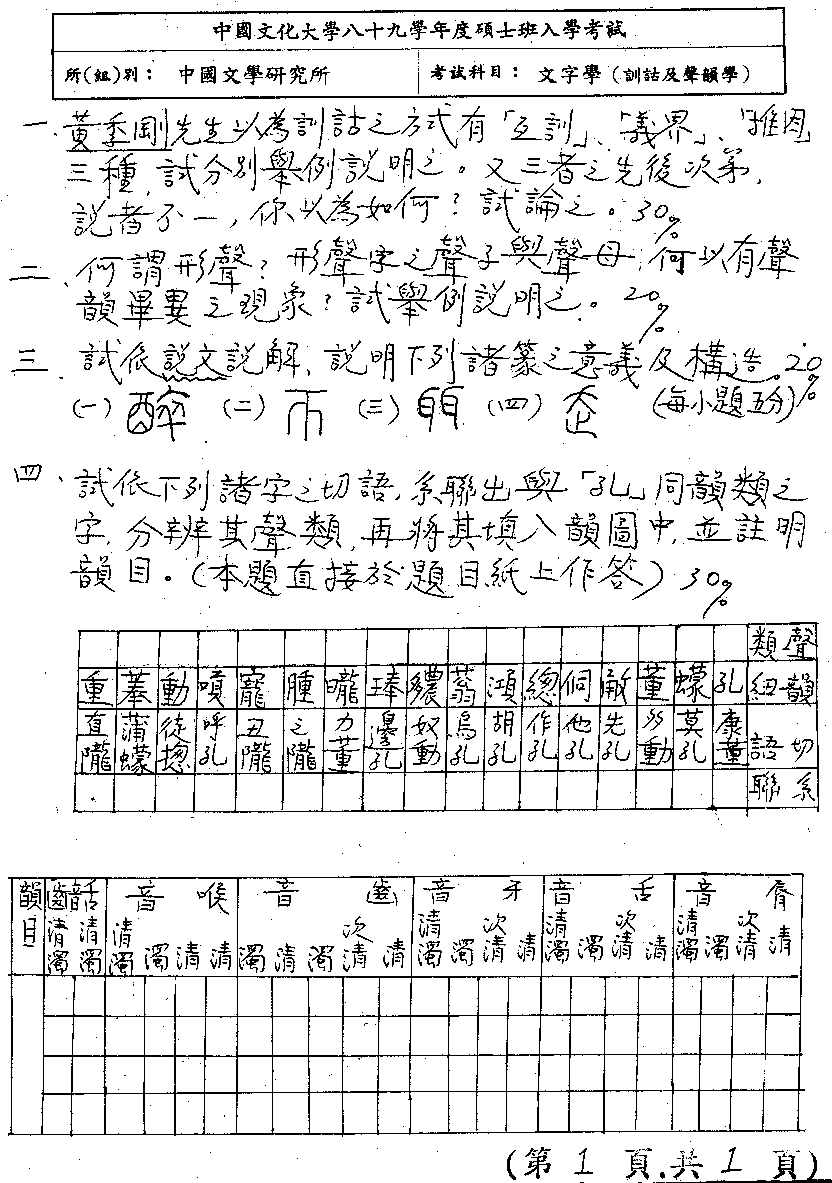 中國文化大學八十九學年度碩士班入學考試
所(組)別： 中國文學研究所 考試科目： 文字學（訓詁及聲韻學）
一、黃季剛先生以為訓詁之方式有「互訓」、「義界」、「推因」
三種，試分別舉例說明之。又三者之先後次第，
說者不一，你以為如何？試論之。30%
二、何謂形聲？形聲字之聲子與聲母，何以有聲
韻畢異之現象？試舉例說明之。20%
三、試依說文說解，說明下列諸篆之意義及構造。20%
(一) (二) (三) (四) (每小題五分)
四、試依下列諸字之切語，系聯出與「孔」同韻類之
字，分辨其聲類，再將其填入韻圖中，並註明
韻目。(本題直接於題目紙上作答) 30%
聲類
韻紐 孔 蠓 董 敵 侗 總 澒 蓊 繷 琫 曨 腫 寵 嗊 動 菶 重
切語 康董 莫孔 多動 先孔 他孔 作孔 胡孔 烏孔 奴動 邊孔 力董 之隴 丑隴 呼孔 徒揔 蒲蠓 直隴
系聯
脣音 舌音 牙音 齒音 喉音 舌齒音 韻目
清 次清 濁 清濁 清 次清 濁 清濁 清 次清 濁 清濁 清 次清 濁 清 濁 清 清 濁 清濁 清濁 清濁
(第 1 頁.共 1 頁)